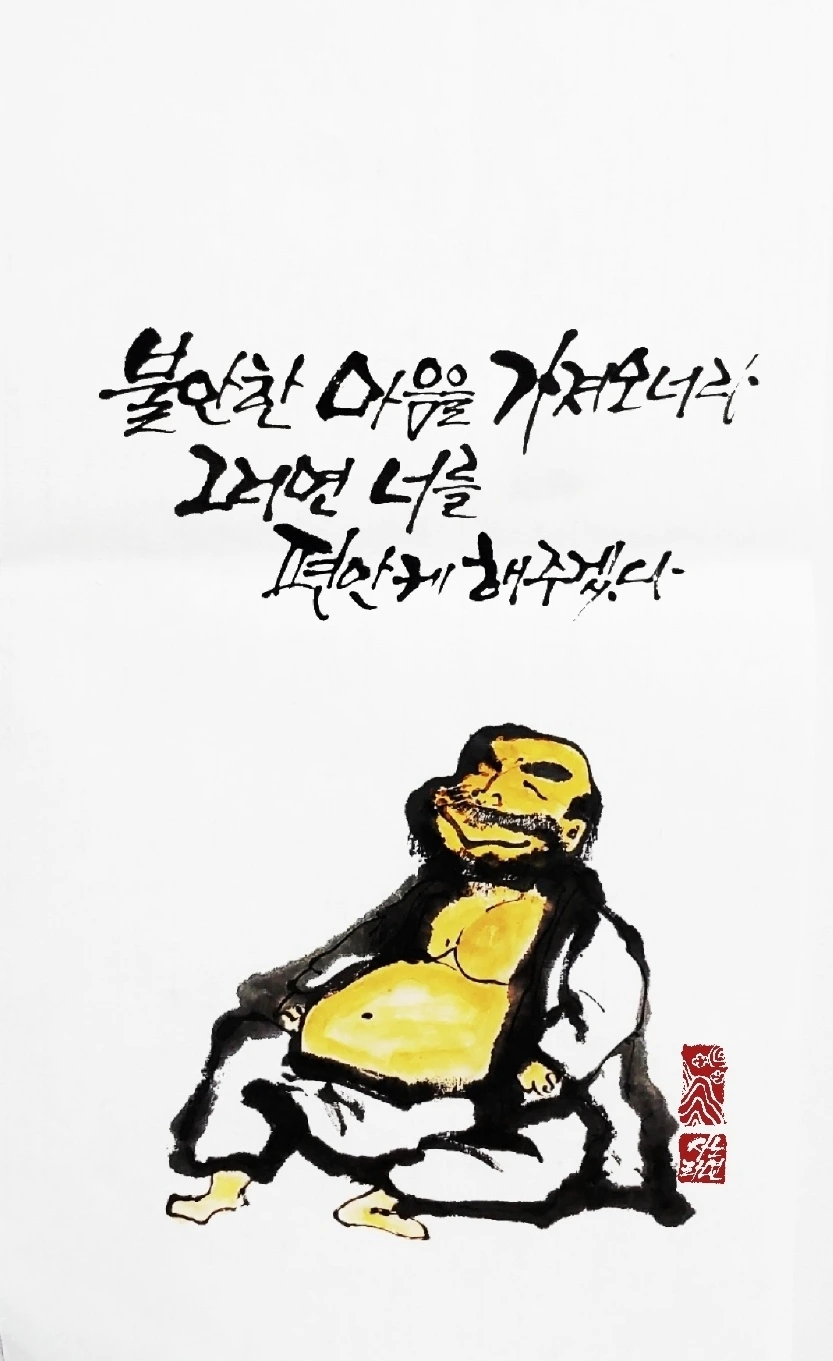 불안한 마음을 가져오너라
그러면 너를
편안케 해주겠다